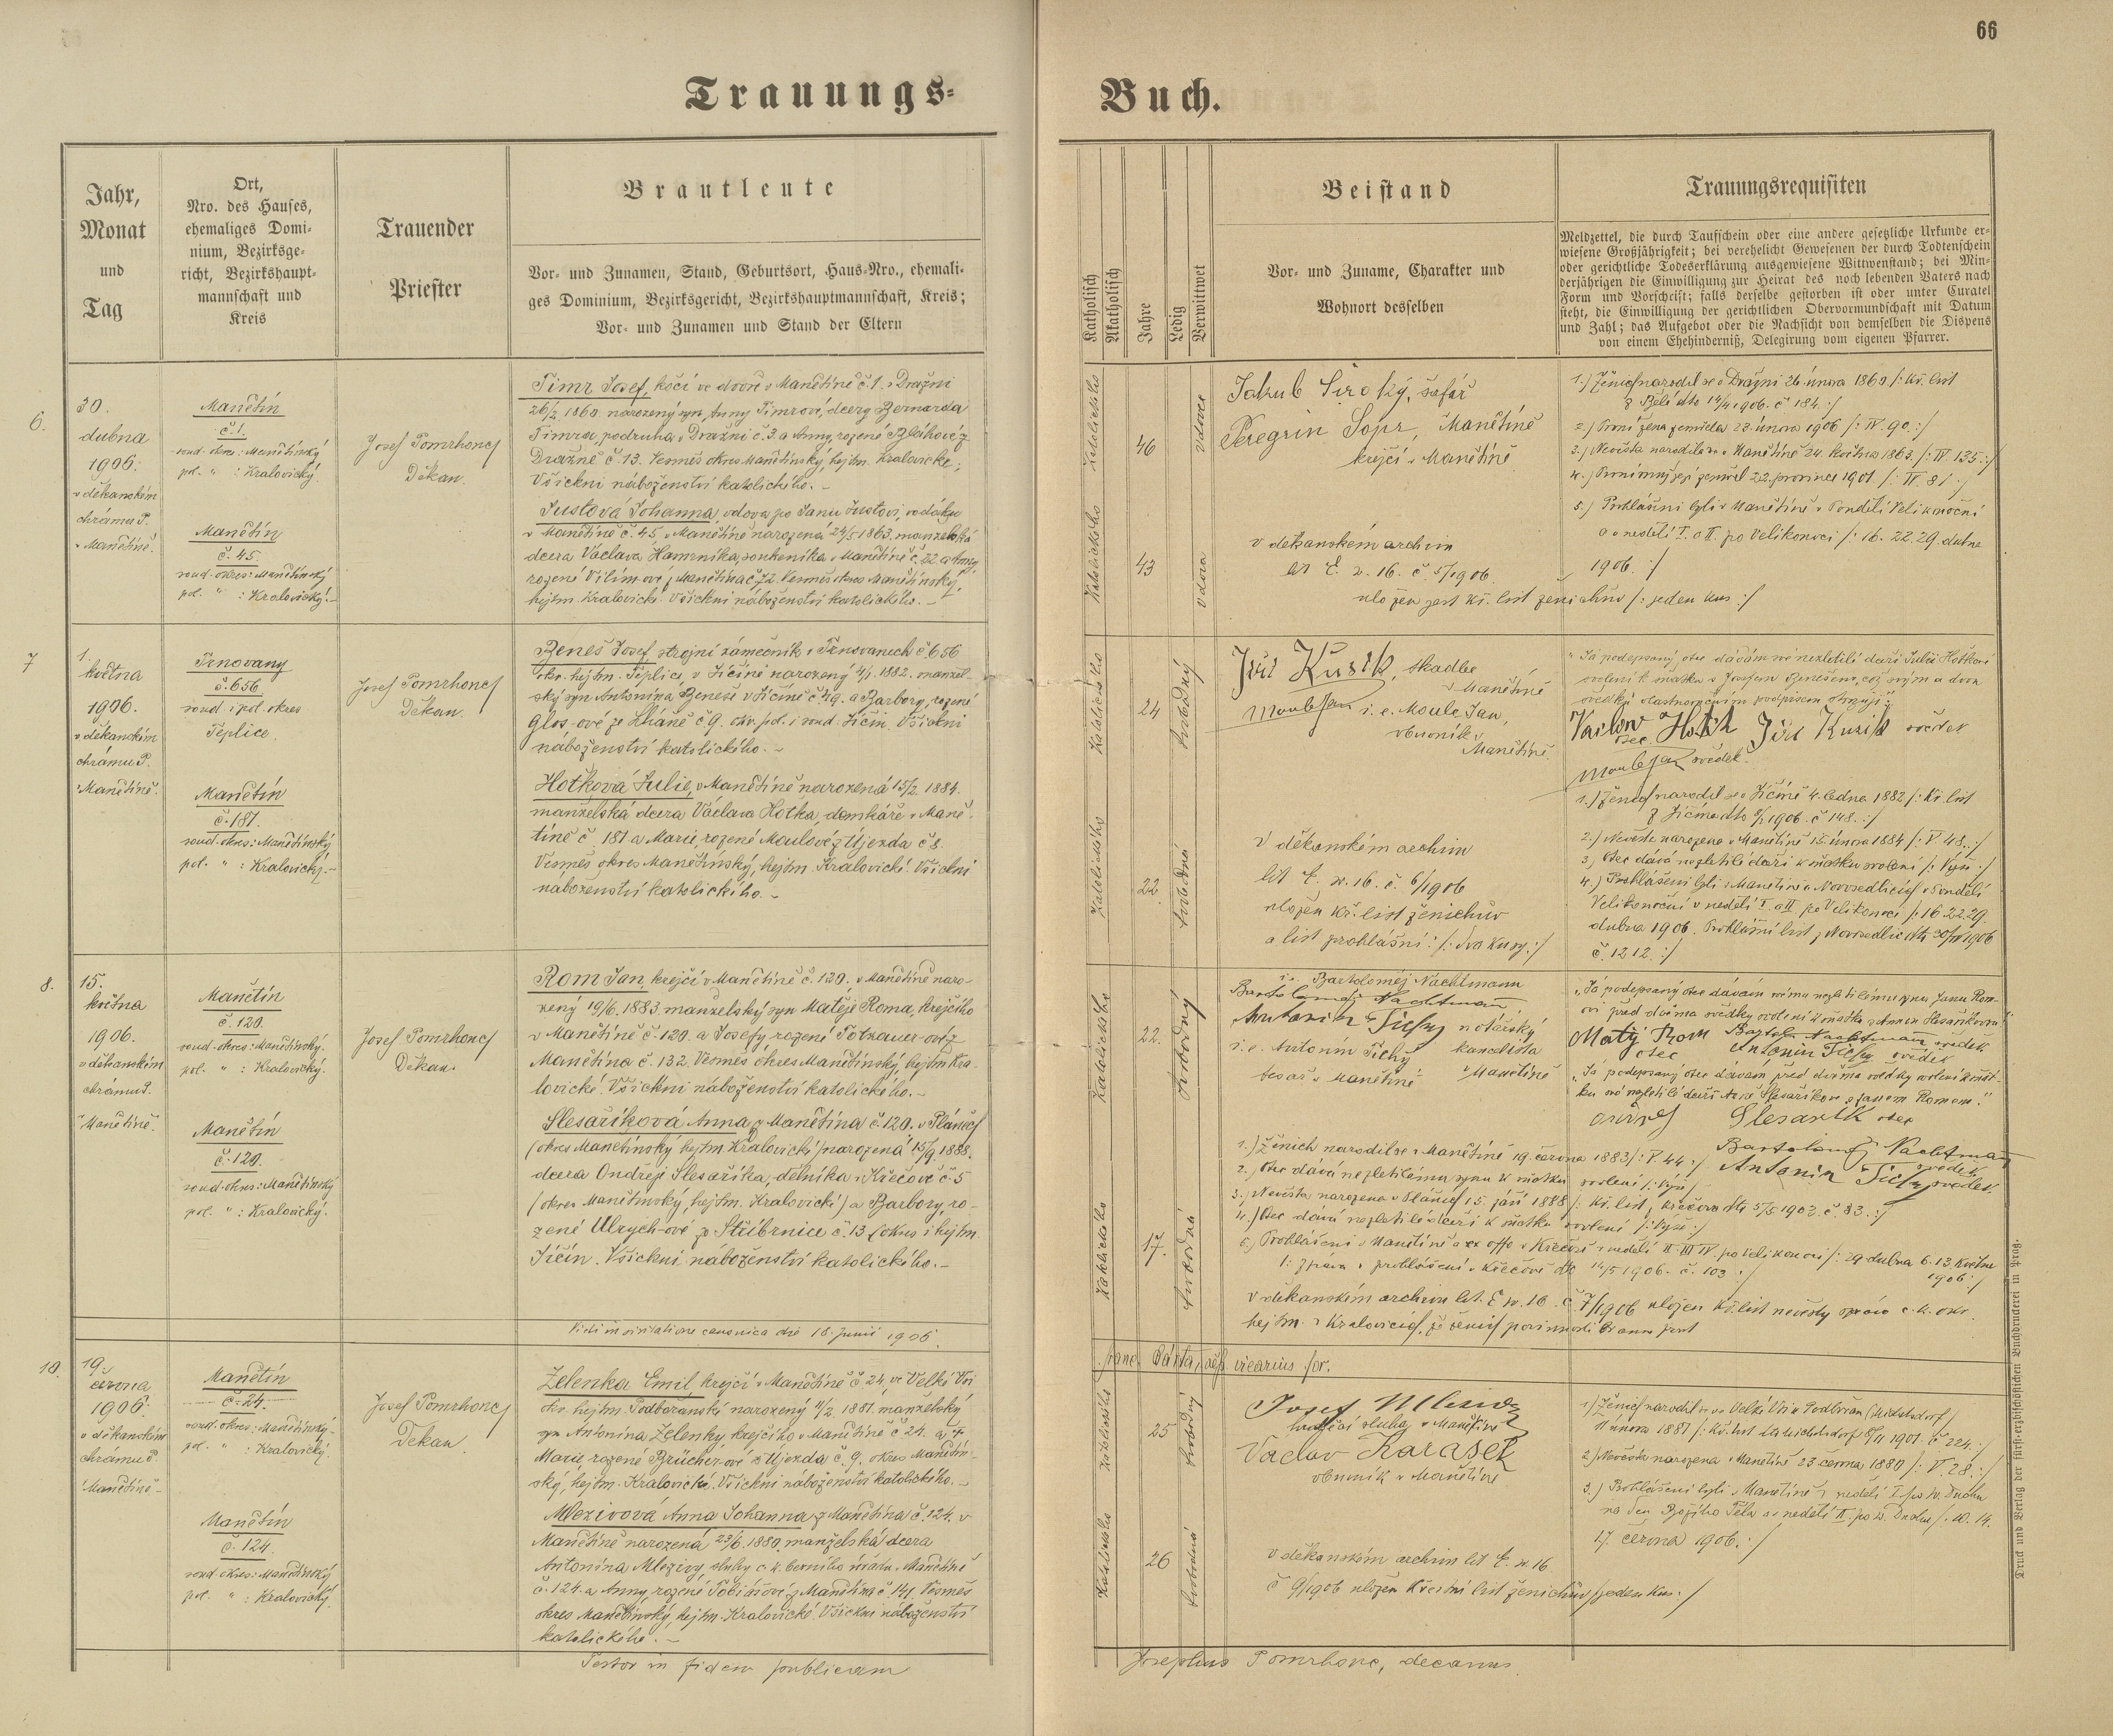 66
Trauungs-
Buch.
Jahr,
Monat
und
Tag
Ort,
Nro. des Hauses,
ehemaliges Domi-
nium, Bezirksge-
richt, Bezirkshaupt-
mannschaft und
Kreis
Trauender
Priester
Brautleute
Vor- und Zunamen, Stand, Geburtsort, Haus-Nro., ehemali-
ges Dominium, Bezirksgericht, Bezirkshauptmannschaft, Kreis;
Vor- und Zunamen und Stand der Eltern
Katholisch
Akatholisch
Jahre
Ledig
Verwittwet
Beistand
Vor- und Zuname, Charakter und
Wohnort desselben
Trauungsrequisiten
Meldzettel, die durch Taufschein oder eine andere gesetzliche Urkunde er-
wiesene Großjährigkeit; bei verehelicht Gewesenen der durch Todtenschein
oder gerichtliche Todeserklärung ausgewiesene Wittwenstand; bei Min-
derjährigen die Einwilligung zur Heirat des noch lebenden Vaters nach
Form und Vorschrift; falls derselbe gestorben ist oder unter Curatel
steht, die Einwilligung der gerichtlichen Obervormundschaft mit Datum
und Zahl; das Aufgebot oder die Nachsicht von demselben die Dispens
von einem Ehehinderniß, Delegirung vom eigenen Pfarrer.
6.
30.
dubna
1906.
v děkanském
chrámu P.
v Manětíně.
Manětín
č. 1.
soud. okres: Manětínský
pol. " : Kralovický.
Manětín
č. 45
soud. okres: Manětínský
pol. " : Kralovický.
Josef Pomrhonc
Děkan.
Timr Josef, kočí ve dvoře v Manětíně č. 1. v Dražni
26/2 1860. narozený syn Anny Timrové, dcery Bernarda
Timra, podruha v Dražni č. 3. a Anny, rozené
Dražně č. 13. Vesměs okres Manětínský, hejtm. Kralovické;
Všickni náboženství katolického.
Justová Johanna, vdova po Janu Justovi,
v Manětíně č. 45, v Manětíně narozená 24/5 1863. manželská
dcera Václava Hamrníka, soukeníka v Manětíně č. 22 a Anny,
rozené Vilímové z Manětína č. 72. Vesměs okres Manětínský,
hejtm. Kralovické. Všickni náboženství katolického.
Katolického
46
vdovec
Katolického
43
vdova
Jakub Široký, šafář
Peregrin Sopr, Manětíně
krejčí v Manětíně
v děkanském archivu
lit. E. n. 16. č. 5/1906.
uložen jest kř. list ženichův /: jeden kus :/
1.) Ženich narodil se v Dražni 26. února 1860 /: kř. list
z Bělé dto 14/4 1906. č 184. :/
2.) První žena zemřela 23. února 1906 /: IV. 90. :/
3.) Nevěsta narodila se v Manětíně 24. května 1863. /: IV 135. :/
4.) První muž její zemřel 22. prosince 1901. /: IV. 81 :/
5.) Prohlášeni byli v Manětíně v Pondělí Velikonoční
a v neděli I. a II. po Velikonoci /: 16. 22. 29. dubna
1906. :/
7
1.
května
1906.
v děkanském
chrámu P.
v Manětíně.
Trnovany
č. 656
soud. i pol. okres
Teplice.
Manětín
č. 181.
soud. okres: Manětínský
pol. " : Kralovický.
Josef Pomrhonc
Děkan.
Beneš Josef strojní zámečník v Trnovanech č. 656
okr. hejtm. Teplice, v Jičíně narozený 4/1. 1882. manžel-
ský syn Antonína Beneše v Jičíně č. 49. a Barbory, rozené
Glos-ové ze Lháně č. 9. okr. pol. i soud. Jičín. Všickni
náboženství katolického.
Hotková Julie, v Manětíně narozená 15/2. 1884.
manželská dcera Václava Hotka, domkáře v Maně-
tíně č 181 a Marie, rozené Moulové z Újezda č 8.
Vesměs okres Manětínský, hejtm. Kralovické. Všickni
náboženství katolického.
Katolického
24
svobodný
Katolického
22.
svobodná
Jiří Kusik, skadle
v Manětíně
i. e. Moule Jan,
obuvník v
Manětíně.
V děkanském archivu
lit E. n. 16. č. 6/1906
uložen kř. list ženichův
a list prohlášní: /: dva kusy. :/
"Já podepsaný otec dávám své nezletilé dceři Julii Hotkové
svolení k sňatku s Josefem Benešem, což svým a dvou
svědků vlastnoručním podpisem stvrzuji."
Vaclav Hotk Jiří Kusik svědek
otec
svědek.
1.) Ženich narodil se v Jičíně 4. ledna 1882 /: Kř. list
z Jičína dto 1906. č 148. :/
2.) Nevěsta narozena v Manětíně 15. února 1884 /: V 48. :/
3.) Otec dává nezletilé dceři k sňatku svolení /: Výše :/
4.) Prohlášeni byli v Manětíně a Novosedlicích v Pondělí
Velikonoční v neděli I. a II. po Velikonoci /: 16. 22. 29.
dubna 1906. Prohlášní list z Novosedlic dto 30/IV 1906
č. 1212. :/
8.
15.
května
1906.
v děkanském
chrámu P.
v Manětíně.
Manětín
č. 120.
soud. okres: Manětínský.
pol. " : Kralovický.
Manětín
č. 120.
soud. okres: Manětínský
pol. " : Kralovický.
Josef Pomrhonc
Děkan.
Rom Jan, krejčí v Manětíně č. 120. v Manětíně naro-
zený 19/6. 1883. manželský syn Matěje Roma, krejčího
v Manětíně č. 120. a Josefy, rozené Potzauer-ové z
Manětína č. 132. Vesměs okres Manětínský, hejtm. Kra-
lovické. Všickni náboženství katolického.
Slesaříková Anna z Manětína č. 120. v Pláních
(okres Manětínský hejtm. Kralovické) narozená 15/9. 1888.
dcera Ondřeje Slesaříka, dělníka v Křečově č. 5
(okres Manětínský, hejtm. Kralovické) a Barbory, ro-
zené Ulrych-ové ze Stříbrnice č. 13 (okres i hejtm.
Jičín. Všickni náboženství katolického.
Katolického
22.
svobodný
Katolického
17.
svobodná
i. e. Bartoloměj Nachtmann
Bartoloměj Nachtman
Antonin Tichy notářský
i. e. Antonín Tichý kancelista
tesař v Manětíně v Manětíně
"Já podepsaný otec dávám svému nezletilému synu Janu Rom-
ovi před dvěma svědky svolení k sňatku s Annou Slesaříkovou."
Matěj Rom Bartoloměj Nachtman svědek
otec Antonin Tichy svědek
"Já podepsaný otec dávám před dvěma svědky svolení k sňat-
ku své nezletilé dceři Anně Slesaříkové s Janem Romem."
Slesarik otec
Bartoloměj Nachtman
svědek
Antonin Tichy svědek.
1.) Ženich narodil se v Manětíně 19. června 1883 /: V. 44 :/
2.) Otec dává nezletilému synu k sňatku svolení /: Výše :/
3.) Nevěsta narozena v Pláních 15. září 1888 /: Kř. list z Křečova dto 5/5 1902. č. 83. :/
4.) Otec dává nezletilé dceři k sňatku svolení /: Výše :/
5.) Prohlášeni v Manětíně a ex offo v Křečově v neděli II. III. IV. po Velikonoci /: 29. dubna 6. 13. května 1906 :/
/: zpráva o prohlášení v Křečově dto 14/5 1906. č. 103 :/
V děkanském archivu lit. E n. 16. č. 7/1906 uložen kř. list nevěsty zpráva c. k. okr.
hejtm. v Kralovicích, že ženich povinnosti branné prost
Vidi in visitatione canonica die 18. Junii 1906.
Franc. Bárta, vicarius for.
10.
19.
června
1906.
v děkanském
chrámu P.
v Manětíně
Manětín
č. 24.
soud. okres: Manětínský
pol. " : Kralovický.
Manětín
č. 124.
soud. okres: Manětínský
pol. " : Kralovický.
Josef Pomrhonc
Děkan.
Zelenka Emil, krejčí v Manětíně č 24, ve Velké Vsi
okr. hejtm. Podbořanské narozený 11/2. 1881. manželský
syn Antonína Zelenky, krejčího v Manětíně č 24. a †
Marie, rozené Brücher-ové z Újezda č. 9. okres Manětín-
ský, hejtm. Kralovické. Všickni náboženství katolického.
Mlezivová Anna Johanna z Manětína č. 124. v
Manětíně narozená 23/6. 1880. manželská dcera
Antonína Mlezivy, sluhy c. k. berního úřadu v Manětíně
č. 124. a Anny, rozené Tobiášové z Manětína č. 141. Vesměs
okres Manětínský, hejtm. Kralovické. Všickni náboženství
katolického.
Katolického
25
svobodný
Katolického
26
svobodná
Josef Mleziva
sluha v Manětíně
Vaclav Karasek
obuvník v Manětíně
v děkanském archivu lit E. n. 16
č 9/1906 uložen křestní list ženichův /: jeden kus :/
1.) Ženich narodil se ve Velké Vsi u Podbořan (Michelsdorf)
11 února 1881 /: Kř. list Michelsdorf 8/11 1901. č 224. :/
2.) Nevěsta narozena v Manětíně 23 června 1880 /: V. 28. :/
3.) Prohlášeni byli v Manětíně v neděli I. po sv. Duchu
na den Božího Těla a v neděli II. po sv. Duchu /: 10. 14.
17. června 1906. :/
Testor in fidem publicam
Josephus Pomrhonc, decanus.
Druck und Verlag der fürst-erzbischöflichen Buchdruckerei in Prag.